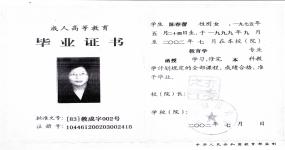 成人高等教育
毕业证书
批准文号：[83]教成字002号
注册号：104461200203002418
学生 陈春蕾 性别女，一九七五
年五月二十四日生，于一九九九年九月
至二〇〇二年七月在本校(院)
教育学 专业
函授 学习，修完 本 科教
学计划规定的全部课程，成绩合格，准
予毕业。
校(院)长：
学校(院)：
二〇〇二年七月 日
中华人民共和国教育部监制